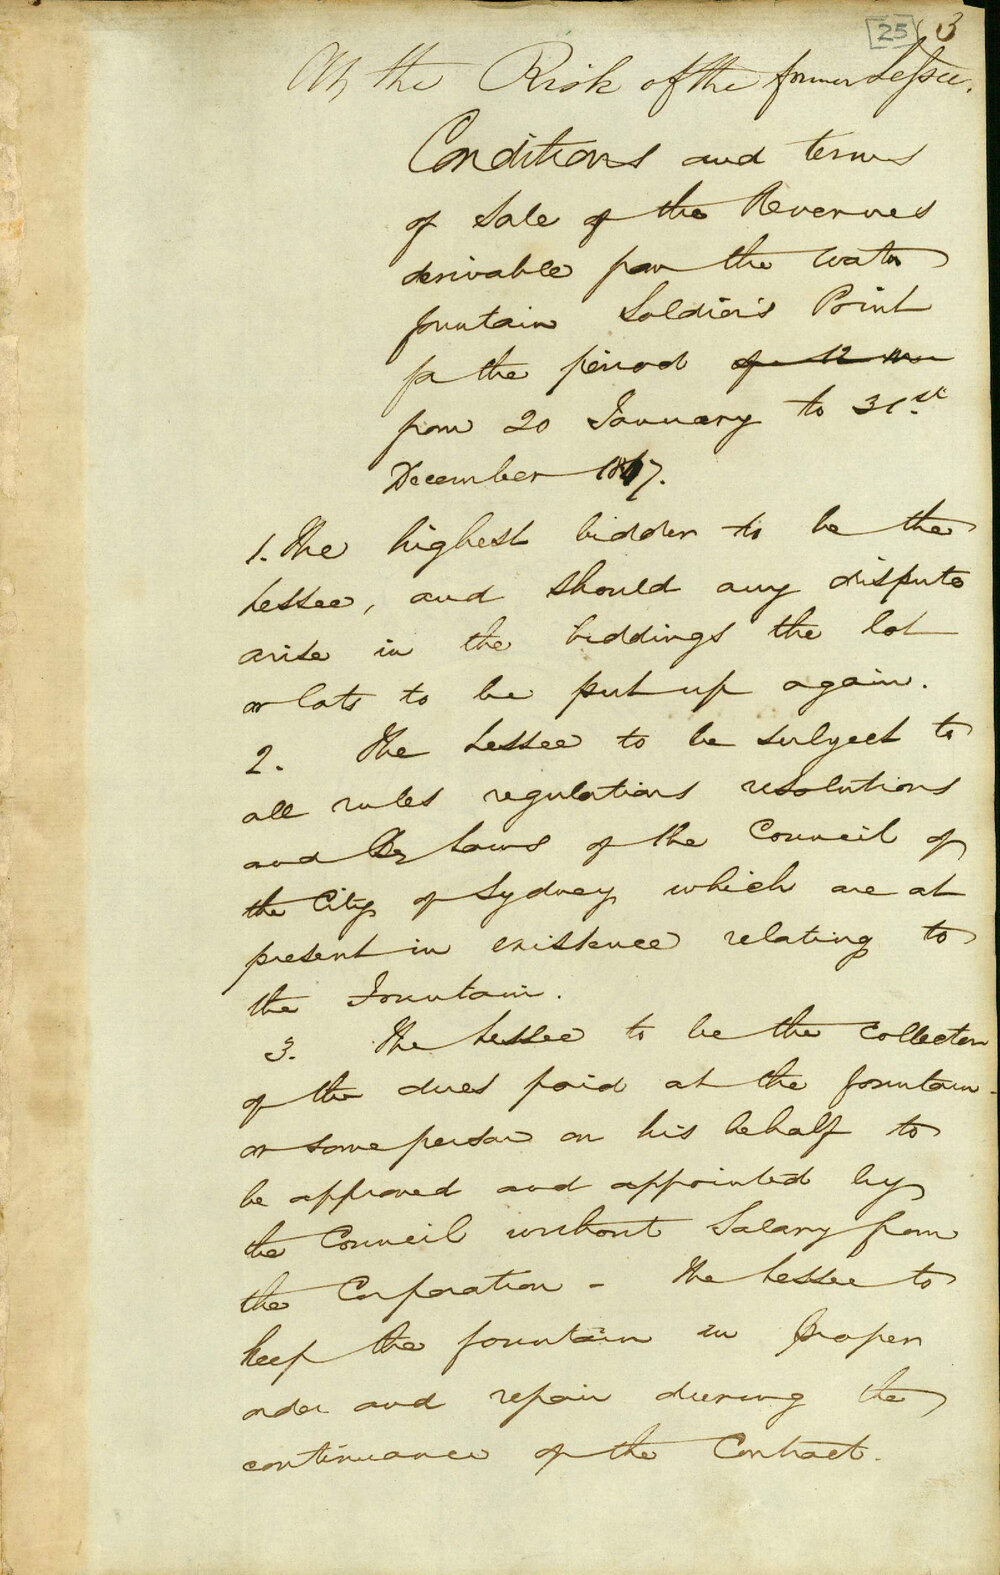 25 3
At the Risk of the former Lessee.
Conditions and terms
of Sale of the Revenues
derivable from the water
fountain Soldier's Point
for the period of 12 Mon
from 20 January to 31st
December 1847.
1. The highest bidder to be the
Lessee, and should any dispute
arise in the biddings the lot
or lots to be put up again.
2. The Lessee to be subject to
all rules regulations resolutions
and By Laws of the Council of
the City of Sydney which are at
present in existence relating to
the Fountain.
3. The Lessee to be the Collector
of the dues paid at the fountain
or some person on his behalf to
be approved and appointed by
the Council without Salary from
the Corporation - The Lessee to
keep the fountain in proper
order and repair during the
continuance of the Contract.